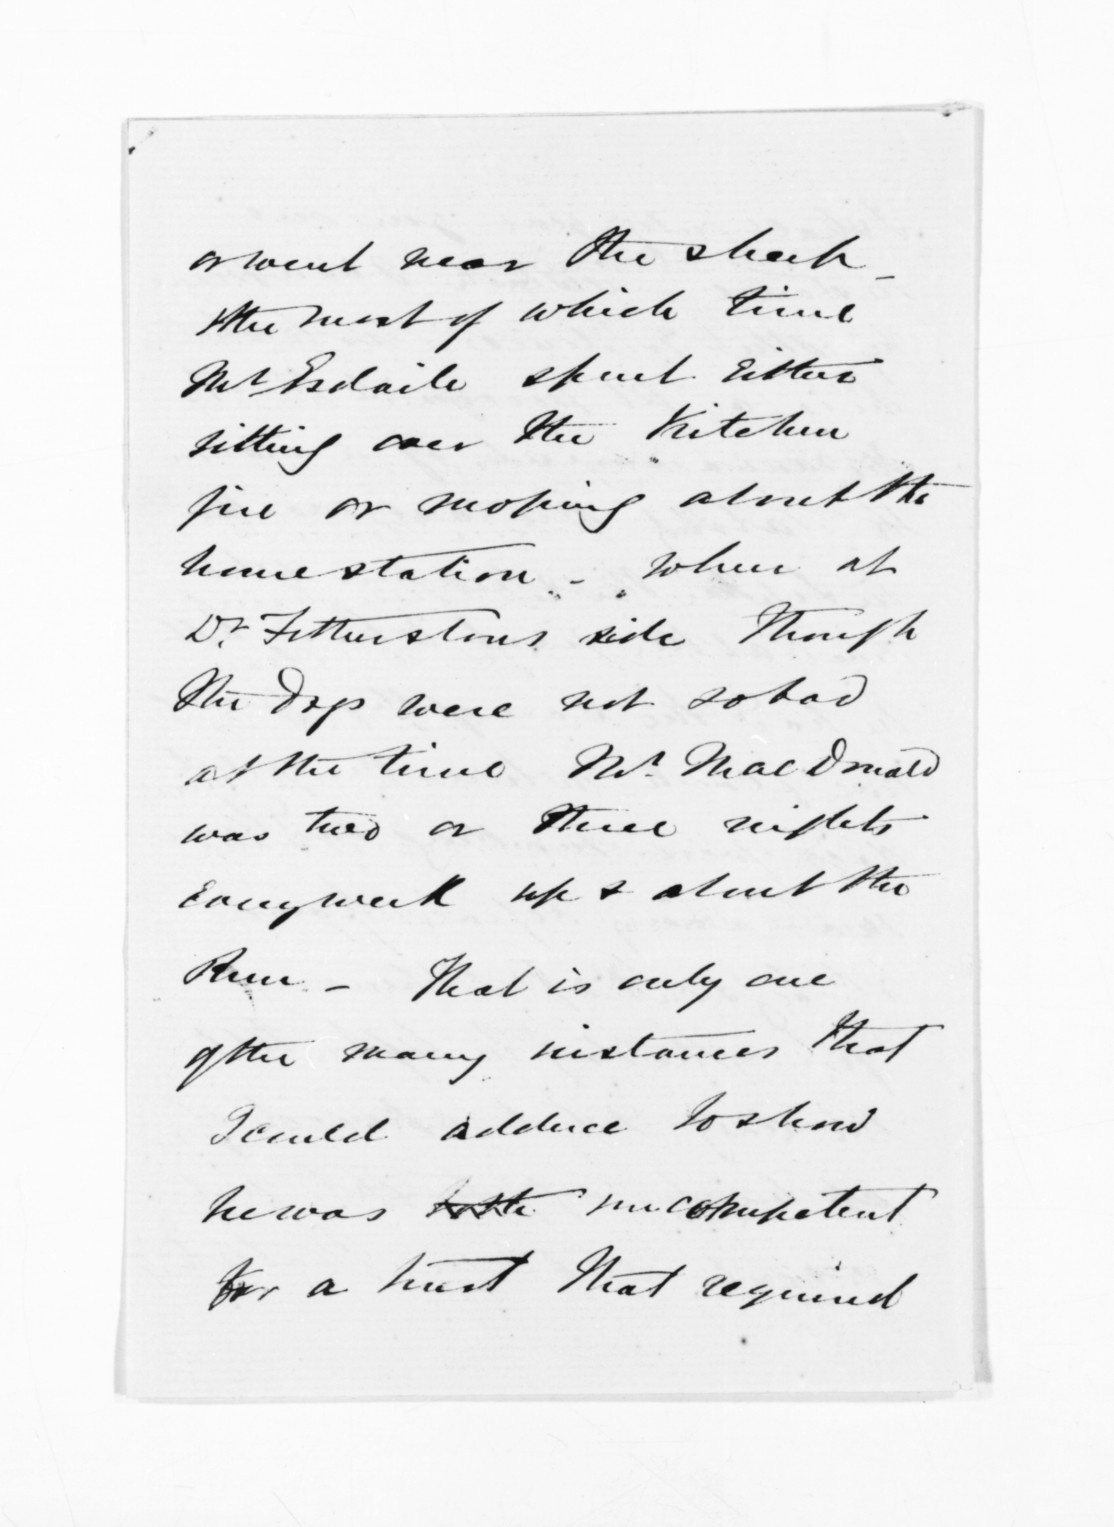 or went near the sheep -
the most of which time
Mr Esdaile spent Either
sitting over the Kitchen
fire or moping about the
home station - when at
Dr. Fetherstons side though
the Dogs were not so bad
at the time Mr MacDonald
was two or three nights
Every week up & about the
Run - That is only one
of the many instances that
I could adduce to show
he was incompetent
for a trust that required